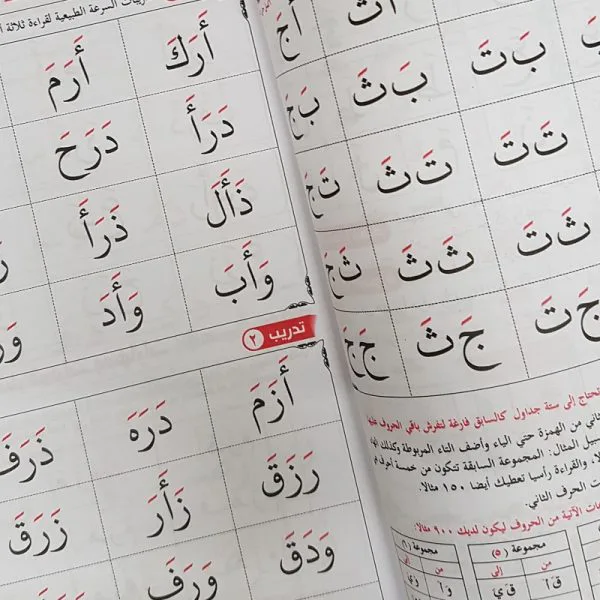 تدريبات السرعة الطبيعية لقراءة ثلاثة
أَرَكَ أَرَمَ
دَرَأَ دَرَحَ
ذَأَلَ ذَرَأَ
وَأَبَ وَأَدَ
تدريب ٢
أَزَمَ دَرَهَ ذَرَفَ
رَزَقَ زَأَرَ زَرَقَ
وَدَقَ وَرَفَ
أَجَ
بَ تَ بَ ثَ بَ جَ
تَ تَ تَ ثَ تَ جَ
ثَ تَ ثَ ثَ ثَ جَ
جَ تَ جَ ثَ جَ جَ
تحتاج إلى ستة جداول كالسابق فارغة لتفرش باقي الحروف عليها
من الهمزة حتى الياء وأضف التاء المربوطة وكذلك
سبيل المثال: المجموعة السابقة تتكون من خمسة أحرف
والقراءة رأسيا تعطيك أيضا ١٥٠ مثالا.
الحرف الثاني.
الآتية من الحروف ليكون لديك ٩٠٠ مثالا.
مجموعة (٥) مجموعة (٦)
من إلى من إلى
قَ أَ قَ يَ وَ أَ وَ يَ